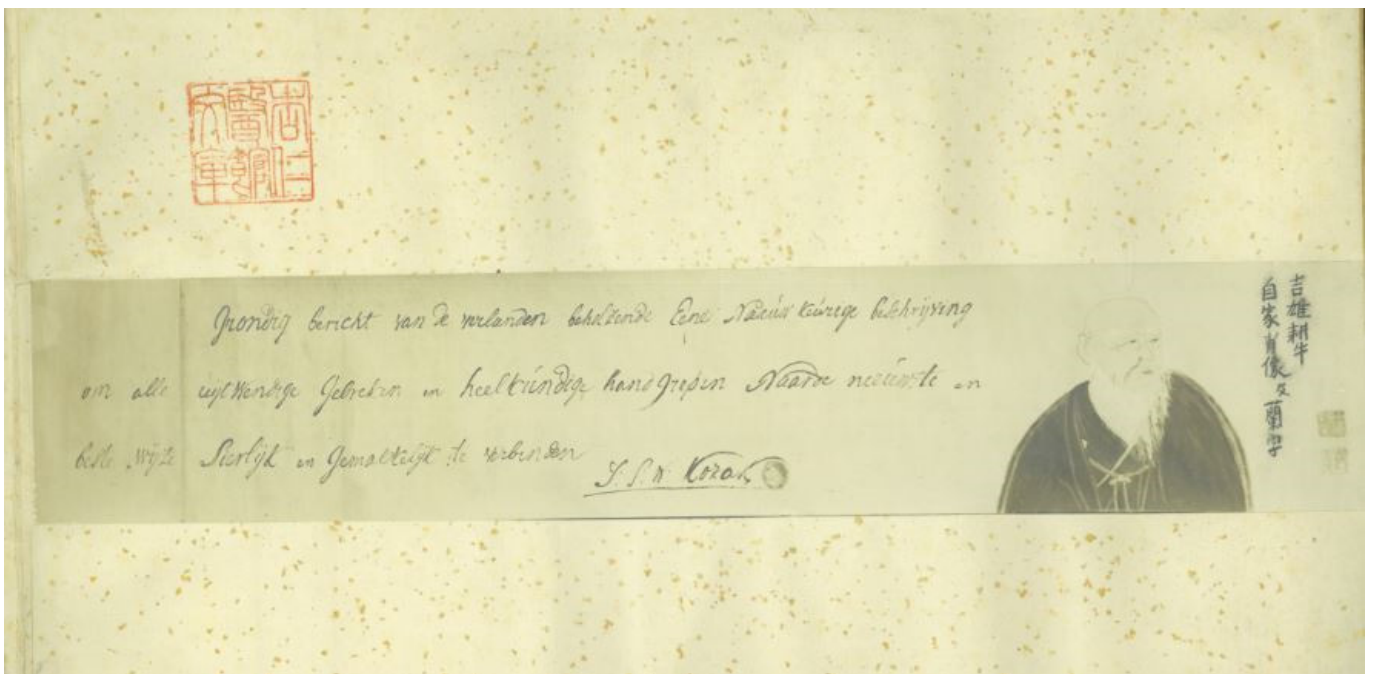 杏仁
醫館
文庫
Grondig bericht van de verbanden behelzende Eene Naeuwkeurige beschrijving
om alle uijtwendige Gebreken en heelkúndige handgrepen Naarde nieuwste en
beste wijze Sierlijk en Gemakkelijk te verbinden
Kozak
吉雄耕牛
自家肖像及蘭字